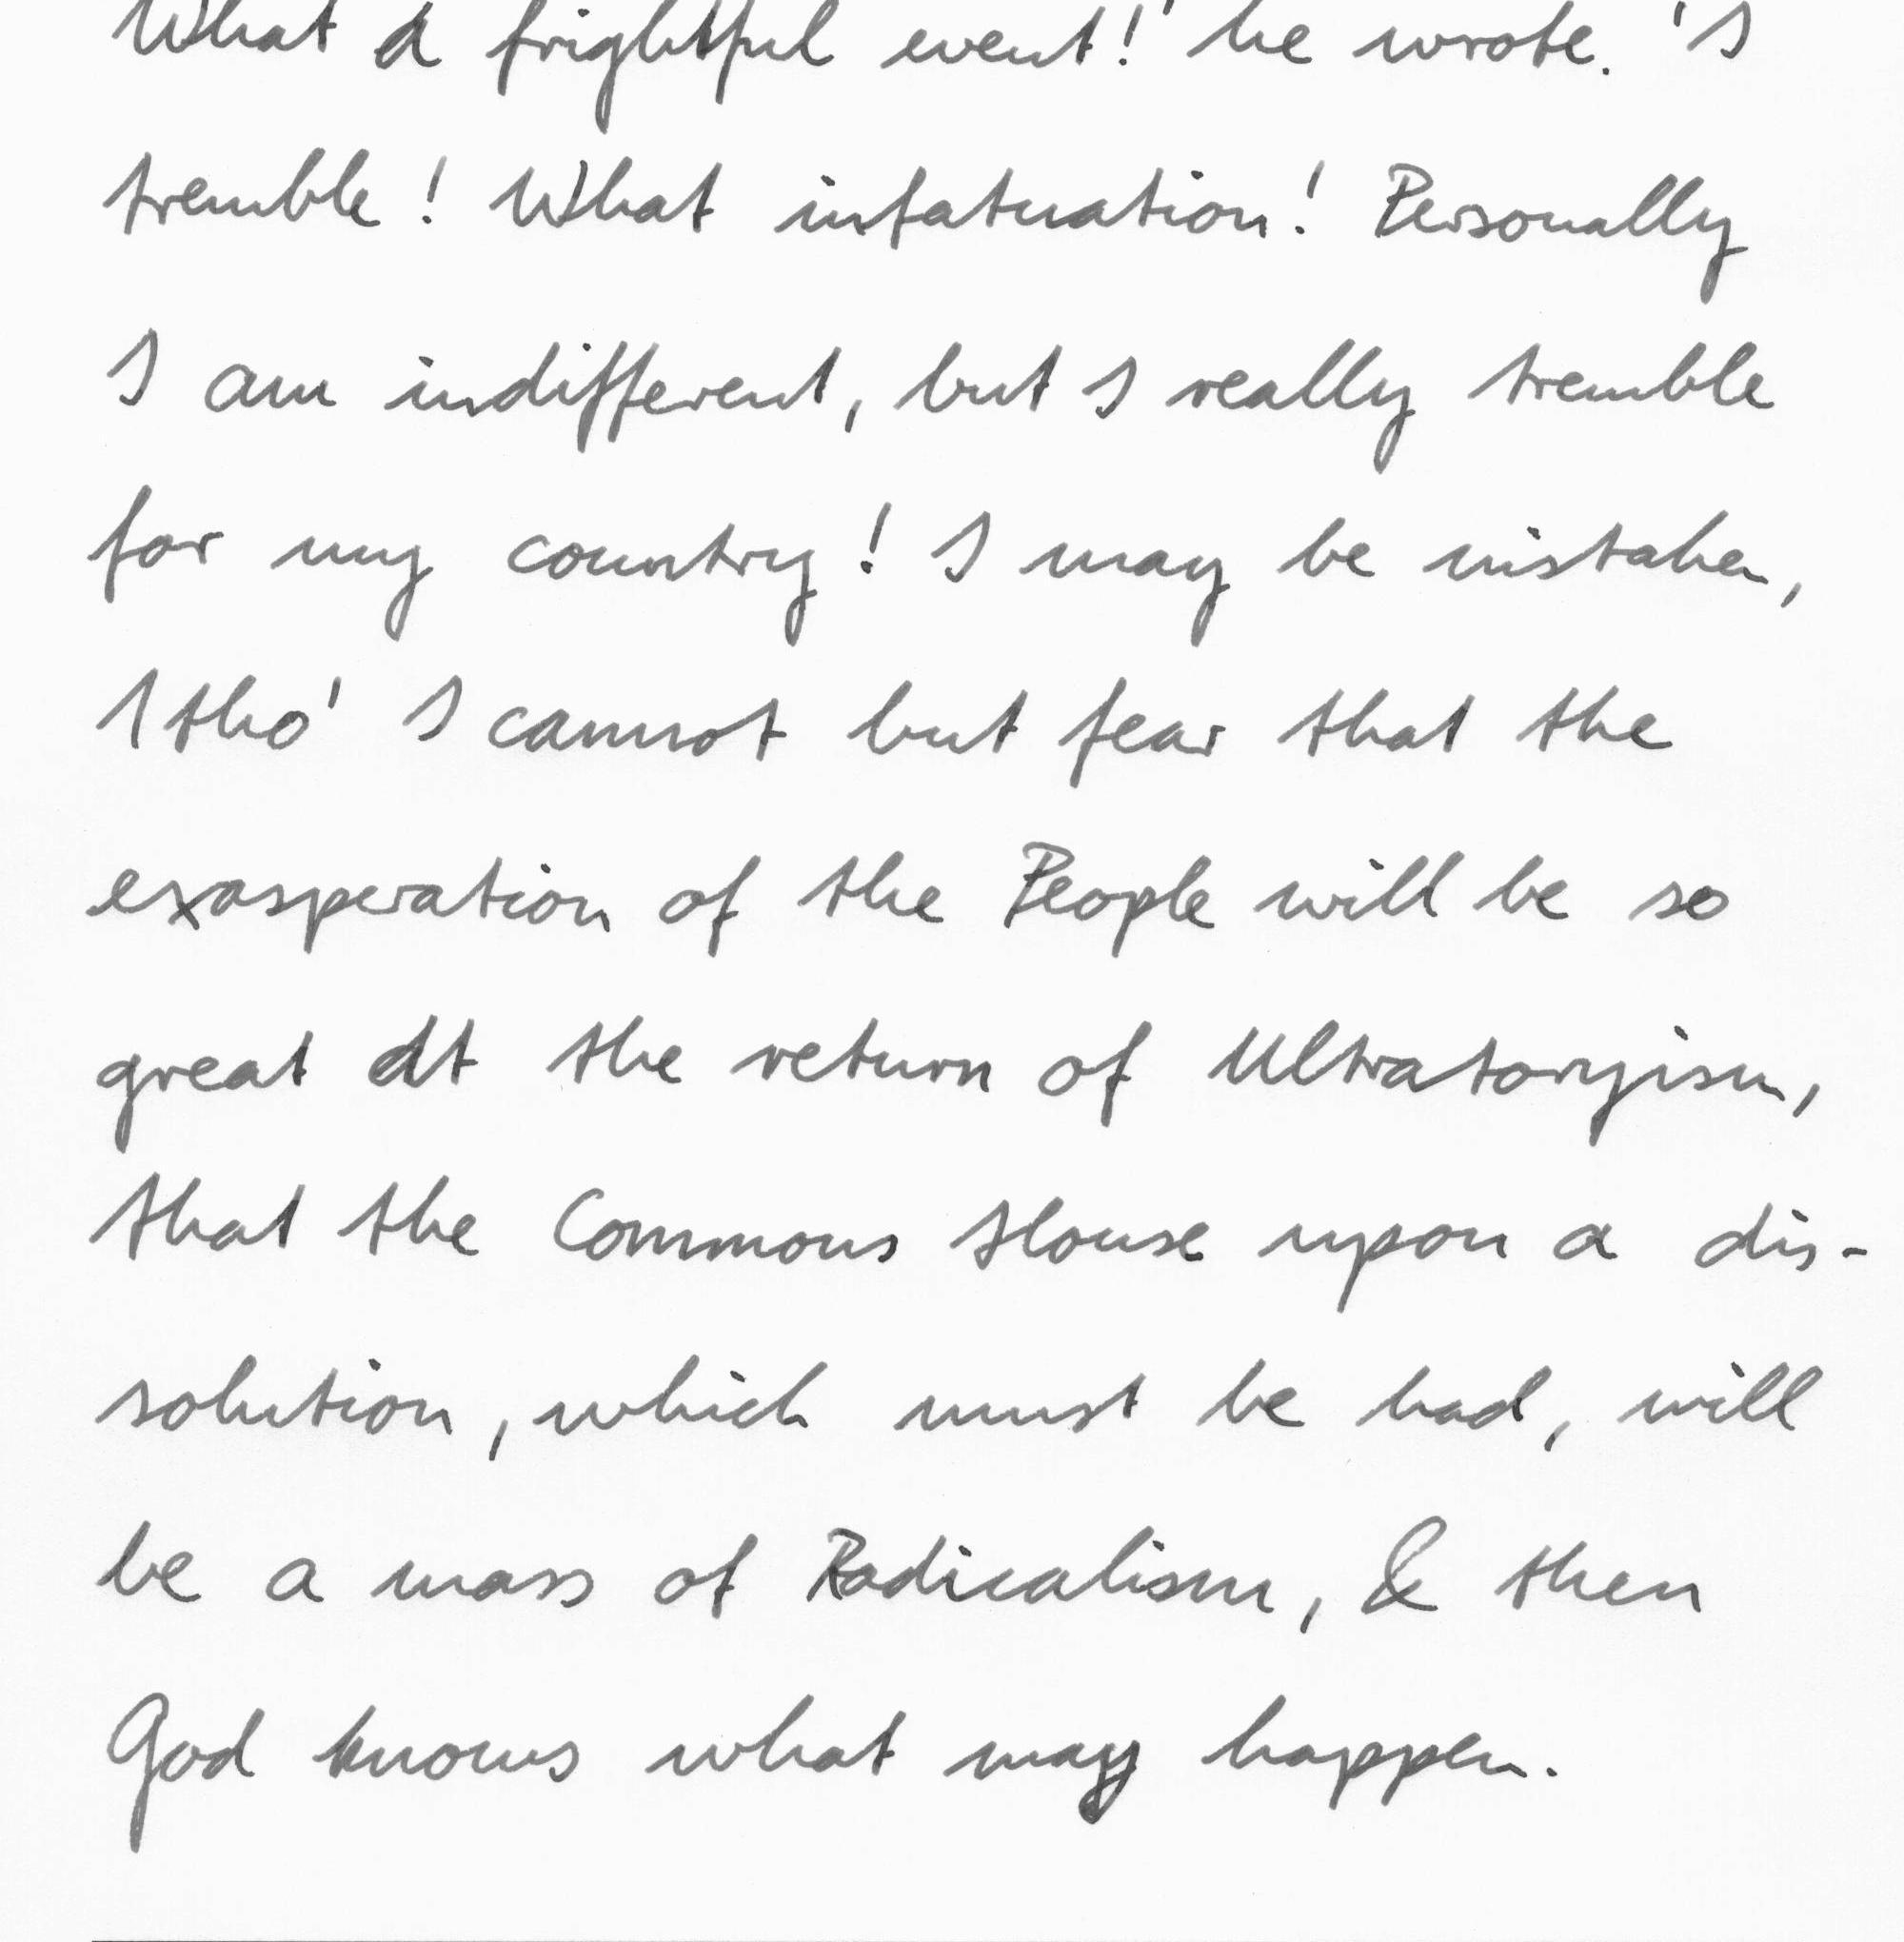 What a frightful event!' he wrote. 'I
tremble! What infatuation! Personally
I am indifferent, but I really tremble
for my country! I may be mistaken,
Itho' I cannot but fear that the
exasperation of the People will be so
great at the return of Ultratoryism,
that the Commons House upon a dis-
solution, which must be had, will
be a mass of Radicalism, & then
God knows what may happen.